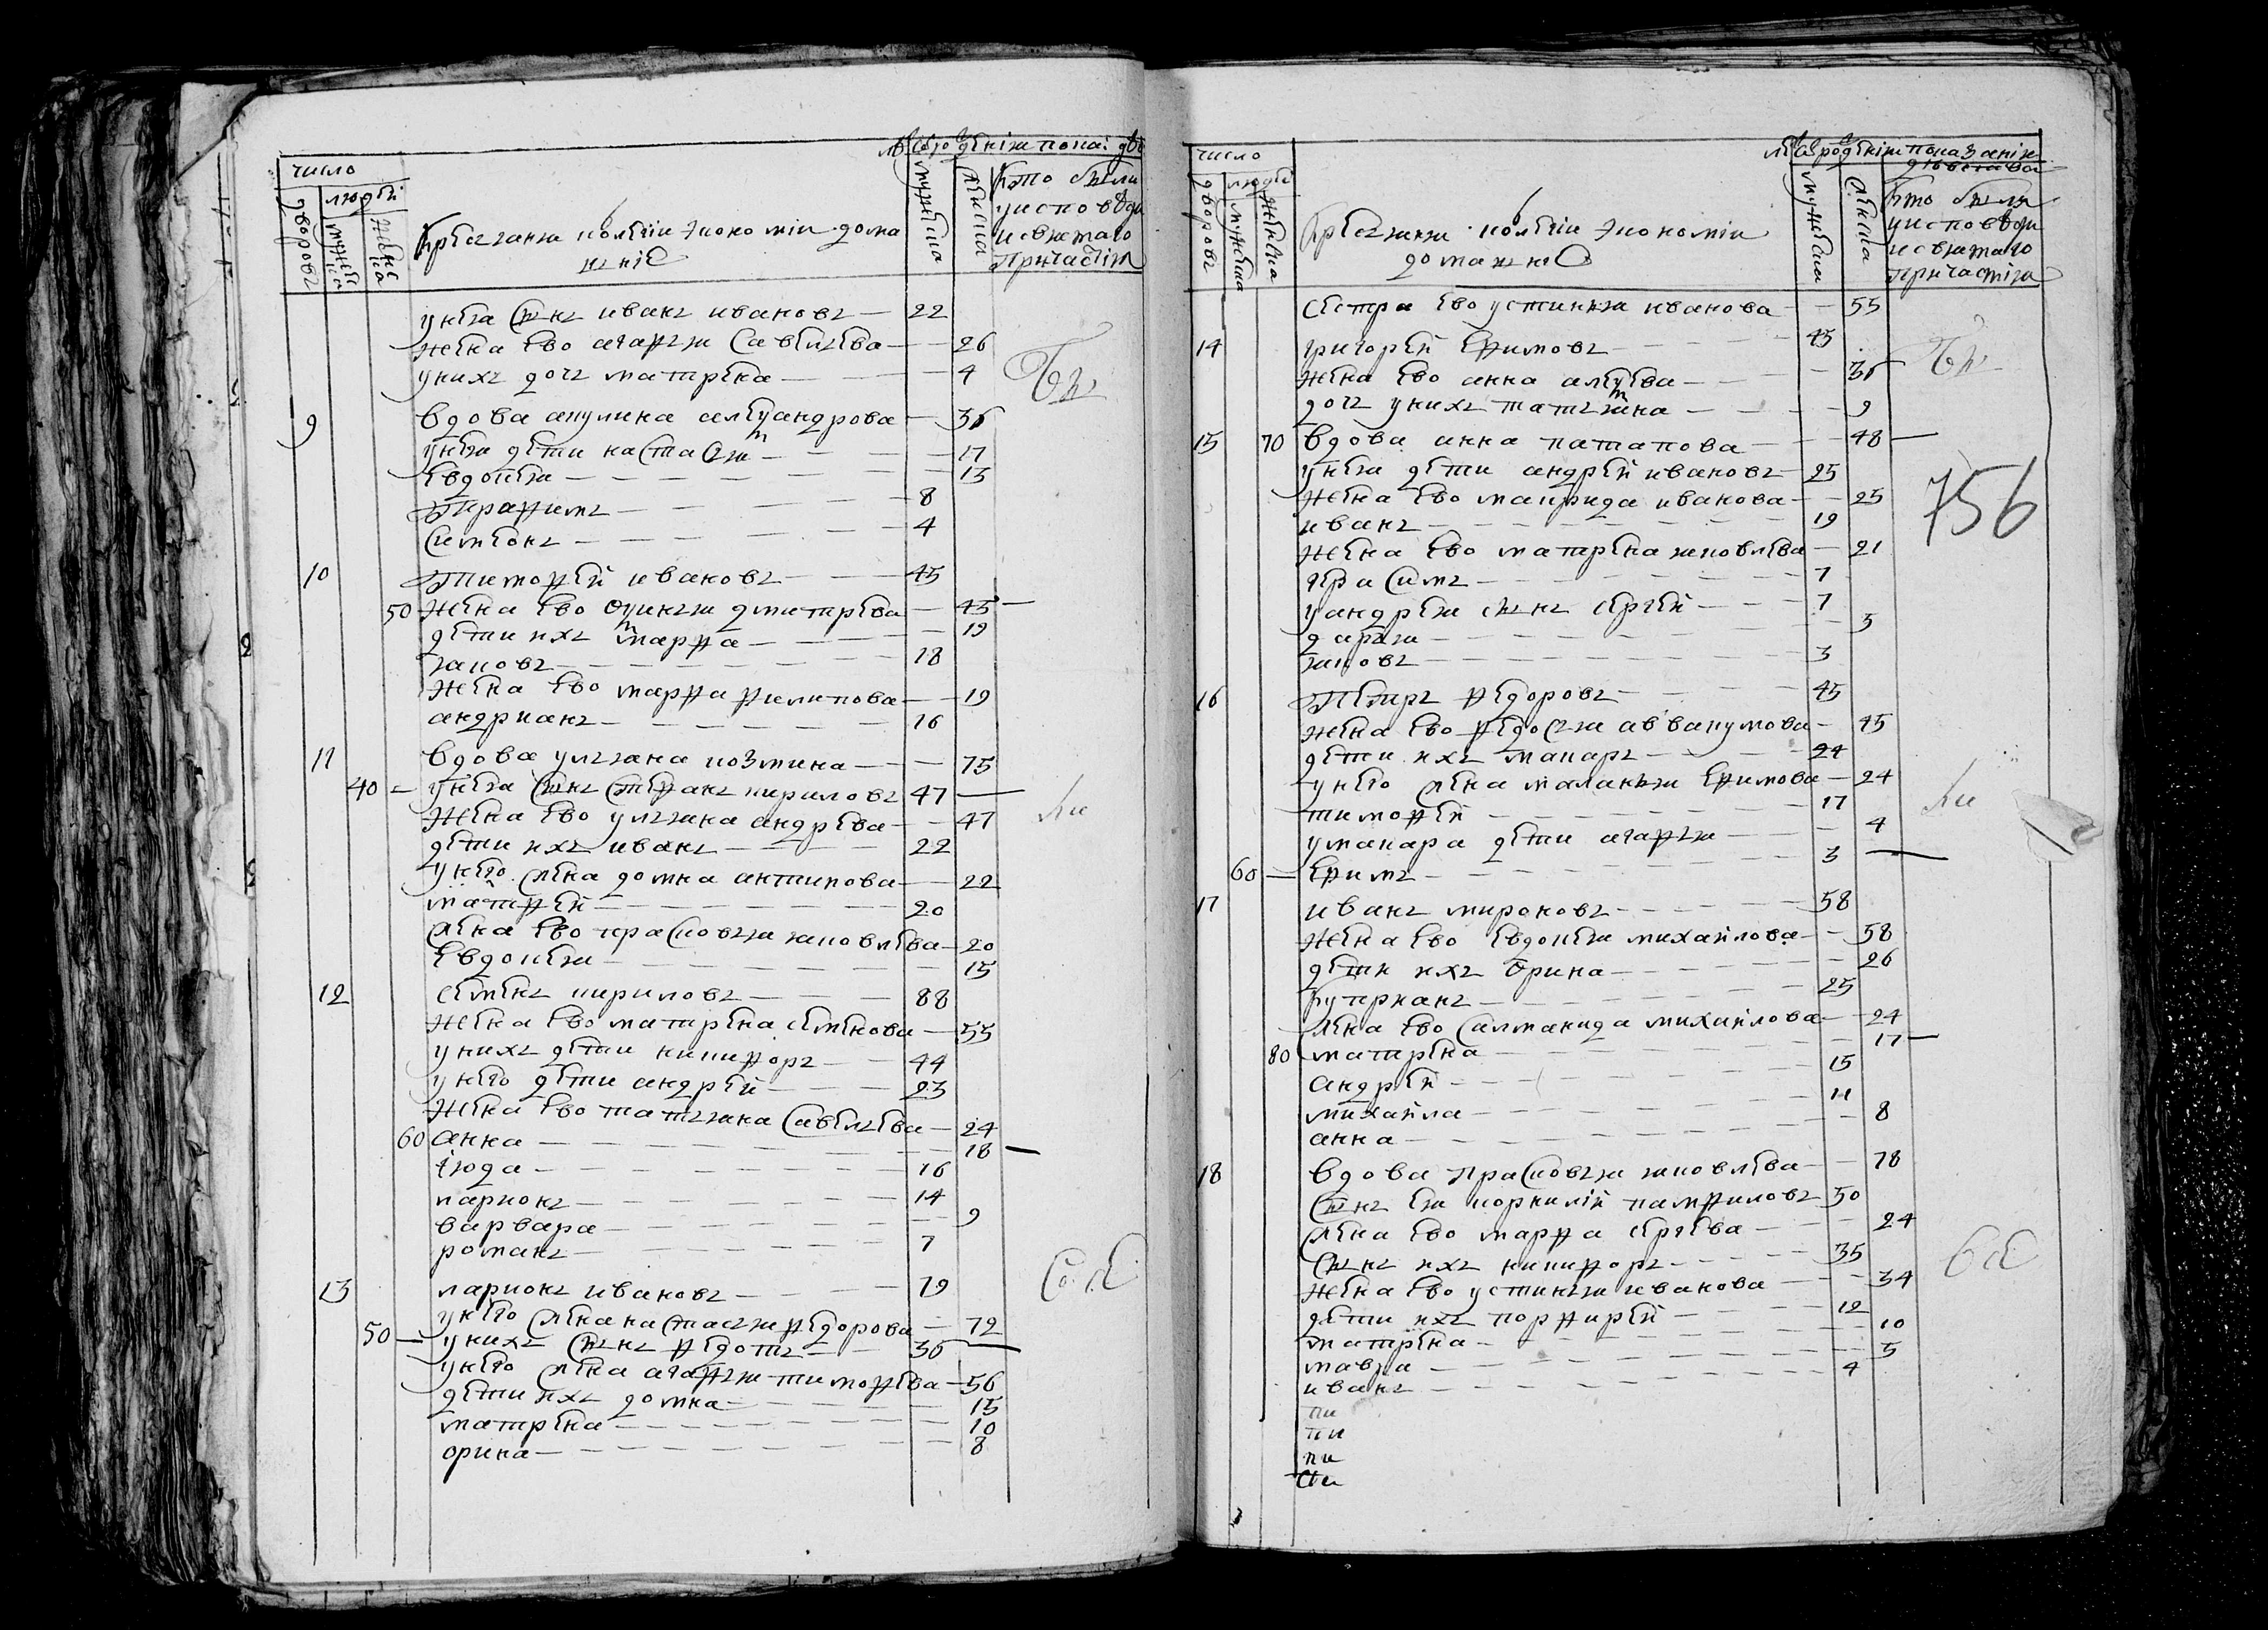 число
людей
дворовъ
мужеска
женска
крестьяня колегии экономии домашние
лета рождения
мужеска
женска
кто были
у исповеди
и святаго
причастия
у нея сынъ иванъ ивановъ 22
жена ево агафья савельева 26
у нихъ дочь матрена 4
Бы
9 вдова акулина александрова 36
у нея дети настасья 17
евдокея 13
Парфимъ 8
симеонъ 4
10 Тимофей ивановъ 45
50 жена ево дмитрева 45
дети ихъ марфа 19
яковъ 18
жена ево марфа филипова 19
андрианъ 16
11 вдова ульяна козмина 75
40 у нея сынъ стефанъ кириловъ 47
жена ево ульяна андрева 47
ли
дети ихъ иванъ 22
у него жена домна антипова 22
матфей 20
жена ево прасковья яковлева 20
евдокея 15
12 семенъ кириловъ 88
жена ево матрена семенова 55
у нихъ дети никифоръ 44
у него дети андрей 23
жена ево татьяна савельева 24
60 анна 18
16
ларионъ 14
варвара 9
романъ 7
13 ларионъ ивановъ 79
у него жена настасья федорова 72
50 у нихъ сынъ федотъ 56
у него жена агафья тимофева 56
дети ихъ домна 15
матрена 10
орина 8
число
людей
дворовъ
мужеска
женска
крестьяня колегии экономии
домашние
лета рождения
показание
действа
мужеска
женска
кто были
у исповеди
и святаго
причастия
сестра ево устинья иванова 55
14 григорей ефимовъ 45
жена ево анна алексеева 36
Бы
дочь у нихъ татьяна 9
15 70 вдова анна патапова 48
у нея дети андрей ивановъ 25
756
жена ево иванова 25
иванъ 19
жена ево матрена яковлева 21
герасимъ 7
у андрея сынъ сергей 7
дарья 5
яковъ 3
16 Петръ федоровъ 45
жена ево федосья аввакумова 45
дети ихъ макаръ 24
у него жена маланья ефимова 24
тимофей 17
ли
у макара дети агафья 4
60 ефимъ 3
17 иванъ мироновъ 58
жена ево евдокея михайлова 58
дети ихъ орина 26
куприанъ 25
жена ево михайлова 24
80 матрена 17
андрей 15
михайла 11
анна 8
18 вдова прасковья яковлева 78
сынъ ея корнилий памфиловъ 50
жена ево марфа сергева 24
сынъ ихъ никифоръ 35
жена ево устинья иванова 34
дети ихъ порфирей 12
матрена 10
мавра 5
иванъ 4